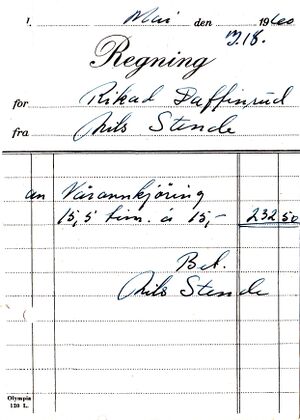 1. Mai den 1960
B.18.
Regning
for Rikad Daffinrud
fra Nils Stende
an Våronnkjöring
15,5 tim. á 15,- 232 50
Bet.
Nils Stende
Olympia
120 L.